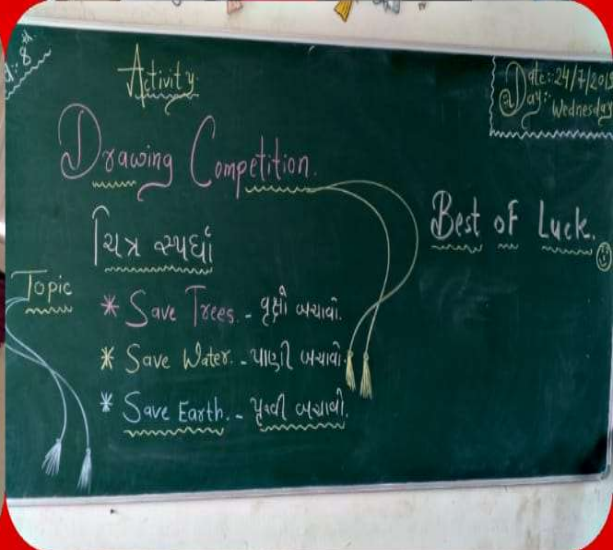 8th
Activity
Date:: 24/7/2019
Day:: Wednesday
Drawing Competition.
ચિત્ર સ્પર્ધા
Best of Luck.
Topic
* Save Trees. - વૃક્ષો બચાવો.
* Save Water. - પાણી બચાવો.
* Save Earth. - પૃથ્વી બચાવો.